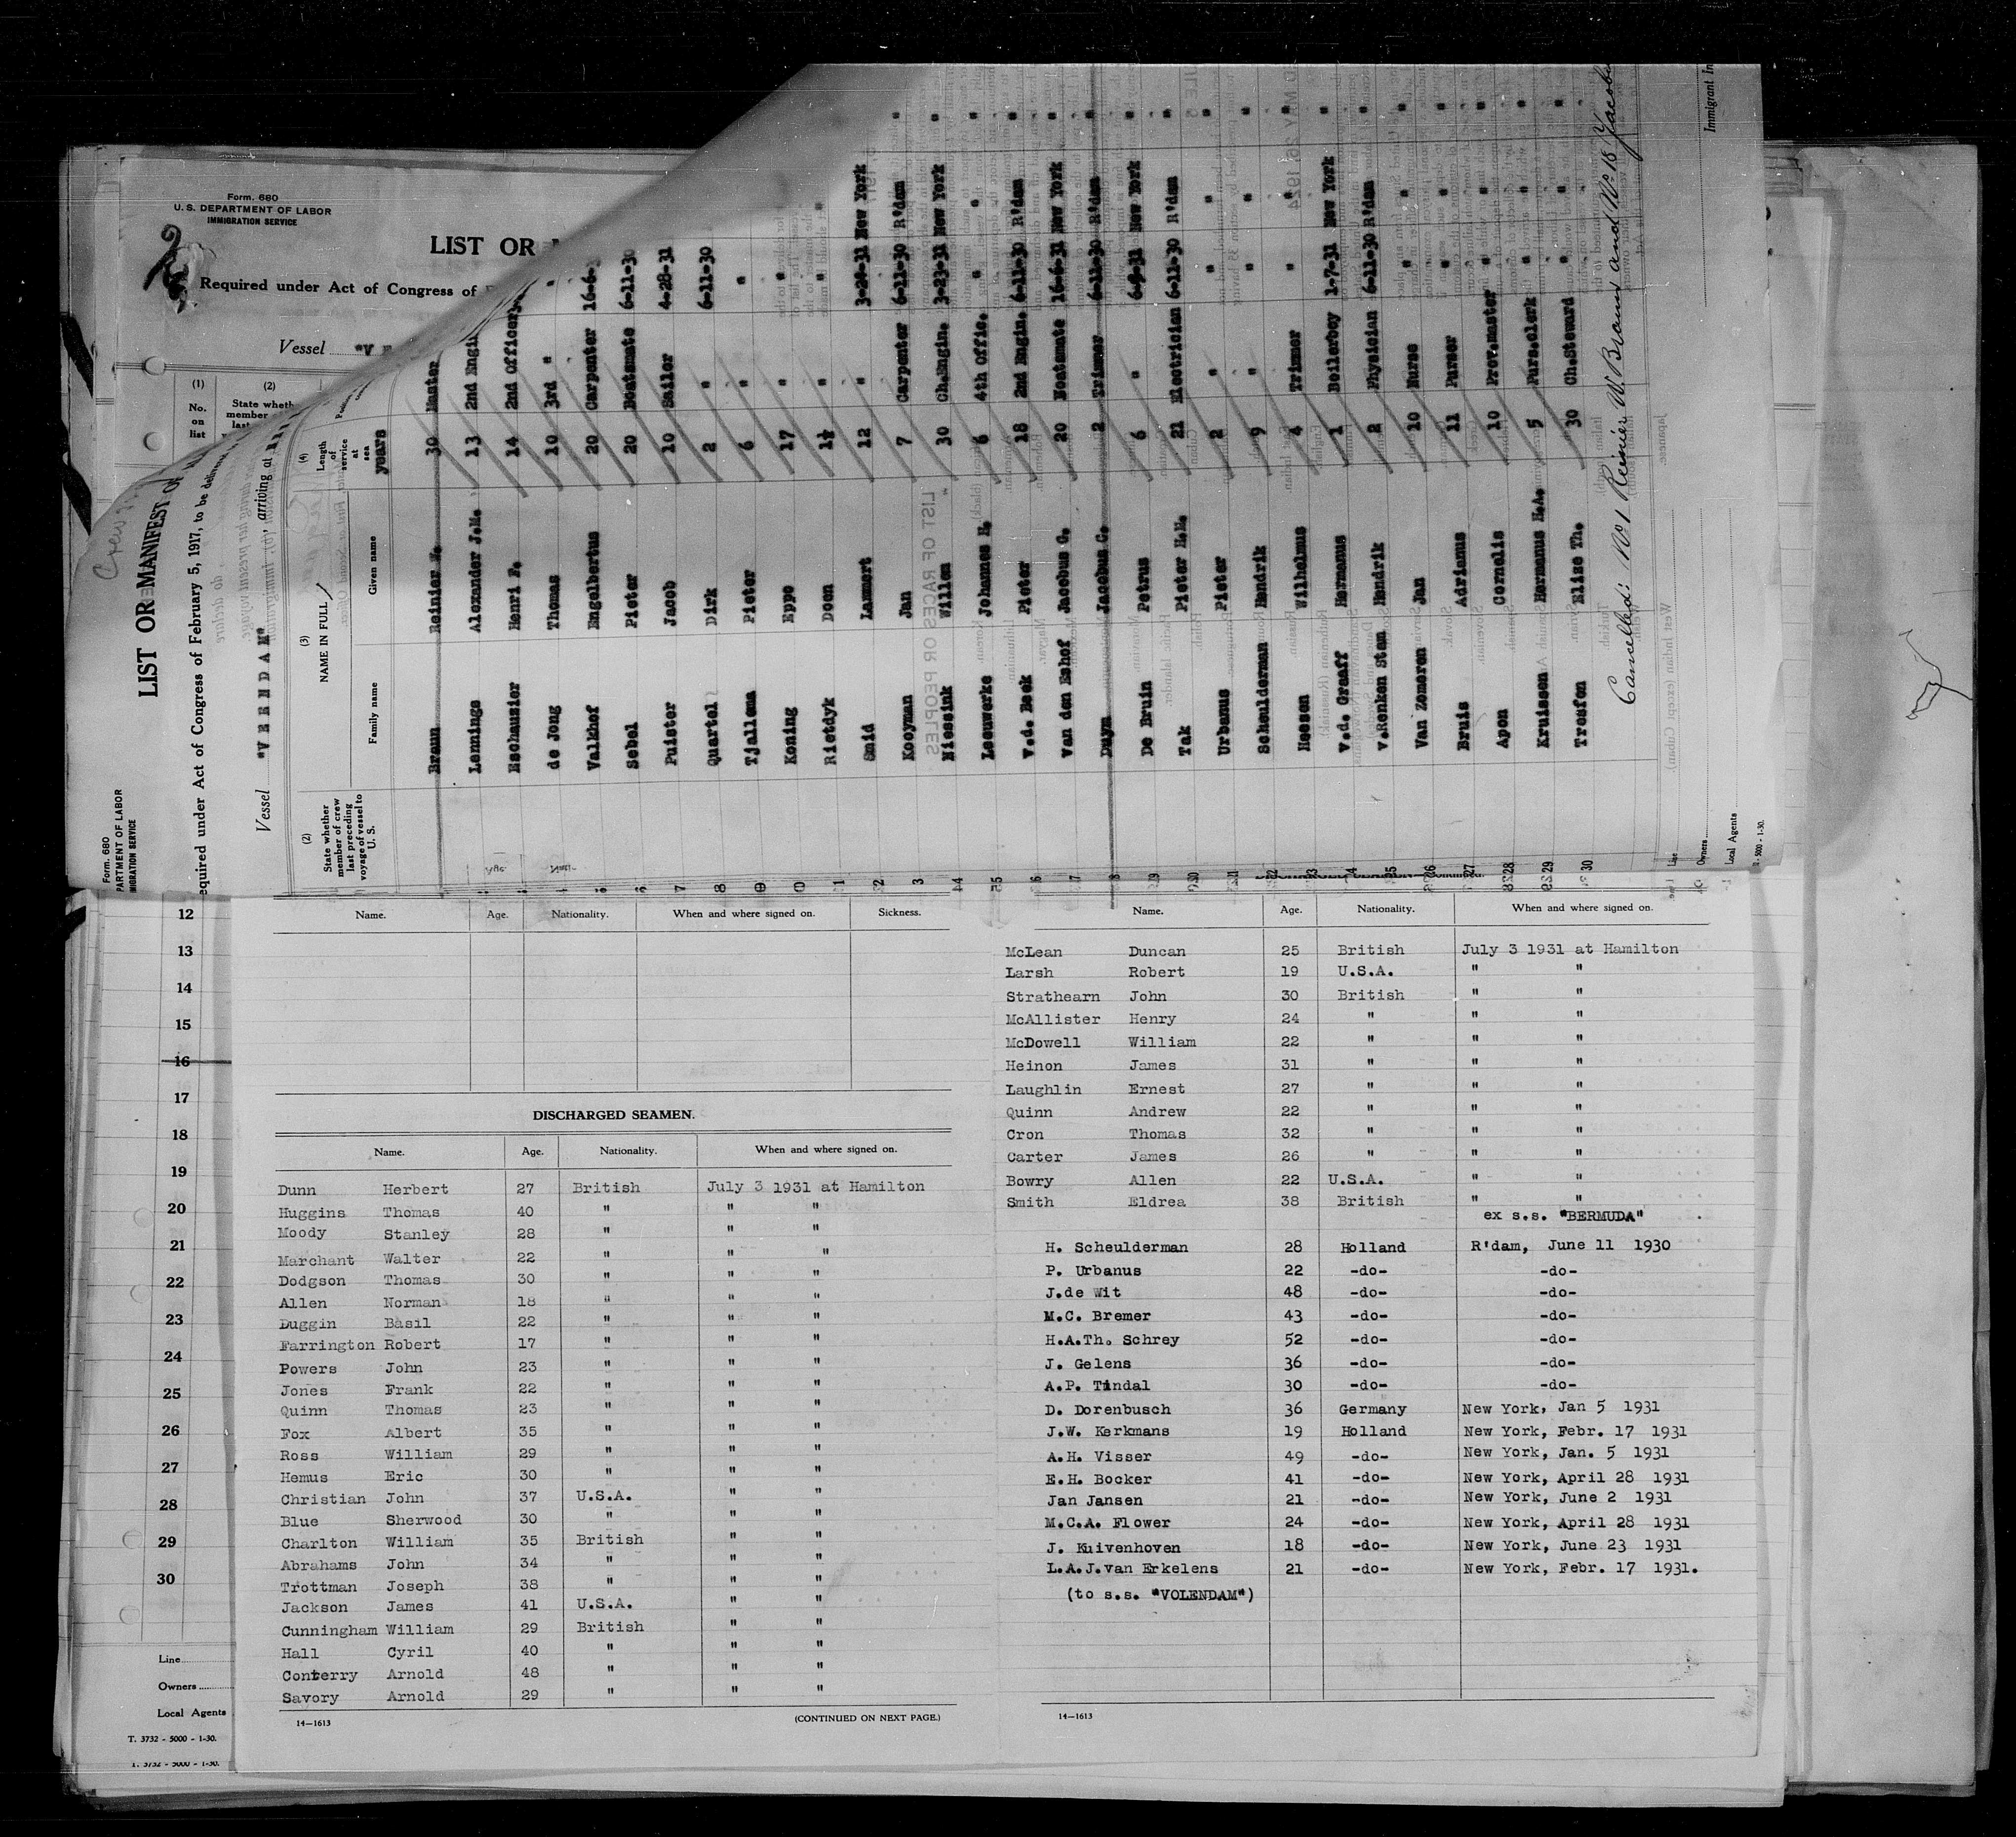 Form. 680
U. S. DEPARTMENT OF LABOR
IMMIGRATION SERVICE
LIST OR
Required under Act of Congress of
Vessel
(1) (2)
No. on list
State wheth
member
las
Form. 680
PARTMENT OF LABOR
MIGRATION SERVICE
LIST OR MANIFEST OF
equired under Act of Congress of February 5, 1917, to be delivered
Vessel "VEENDAM", arriving at
(2) (3) (4)
State whether member of crew last preceding voyage of vessel to U. S.
NAME IN FULL
Family name Given name
Length of service at sea
years
Braun Reinier W. 30 Master
Lennings Alexander J.M. 13 2nd Engin
Eschauzier Henri F. 14 2nd Officer
de Jong Thomas 10 3rd "
Valkhof Engelbertus 20 Carpenter 16-6-3
Sebel Pieter 20 Boatsmate 6-11-30
Puister Jacob 10 Sailor 4-28-31
Quartel Dirk 2 " 6-11-30
Tjallema Pieter 6 " "
Koning Eppe 17 "
Rietdyk Doen 1½ " "
Smid Lammert 12 " 3-24-31 New York
Kooyman Jan 7 Carpenter 6-11-30 R'dam "
Niessink Willem 30 Ch.Engin. 3-23-31 New York "
Leeuwerke Johannes H. 6 4th Offic. " " "
v.d. Beek Pieter 18 2nd Engin. 6-11-30 R'dam "
Van den Eshof Jacobus G. 20 Boatsmate 16-6-31 New York "
Duym Jacobus C. 2 Trimmer 6-11-30 R'dam "
De Bruin Petrus 6 " 6-9-31 New York "
Tak Pieter H.M. 21 Electrician 6-11-30 R'dam "
Urbanus Pieter 2 " " " "
Scheulderman Hendrik 9 " " " "
Heesen Wilhelmus 4 Trimmer " " "
v.d. Graaff Hermanus 1 Boilerboy 1-7-31 New York "
v.Renken Stam Hendrik 2 Physician 6-11-30 R'dam "
Van Zomeren Jan 10 Nurse " " "
Bruis Adrianus 11 Purser " " "
Apon Cornelis 10 Prov.master " " "
Kruissen Hermanus H.A. 5 Purs.clerk " " "
Trosfen Elize Th. 30 Ch.Steward " " "
Cancelled: No 1 Reinier W. Braun and No 18 Jacobu
Immigrant In
Line
Owners
Local Agents
12
13
14
15
16
17
18
19
20
21
22
23
24
25
26
27
28
29
30
Line
Owners
Local Agents
T. 3732 - 5000 - 1-30.
T. 3732 - 5000 - 1-30.
Name. Age. Nationality. When and where signed on. Sickness.
DISCHARGED SEAMEN.
Name. Age. Nationality. When and where signed on.
Dunn Herbert 27 British July 3 1931 at Hamilton
Huggins Thomas 40 " " "
Moody Stanley 28 " " "
Marchant Walter 22 " " "
Dodgson Thomas 30 " " "
Allen Norman 18 " " "
Duggin Basil 22 " " "
Farrington Robert 17 " " "
Powers John 23 " " "
Jones Frank 22 " " "
Quinn Thomas 23 " " "
Fox Albert 35 " " "
Ross William 29 " " "
Hemus Eric 30 " " "
Christian John 37 U.S.A. " "
Blue Sherwood 30 " " "
Charlton William 35 British " "
Abrahams John 34 " " "
Trottman Joseph 38 " " "
Jackson James 41 U.S.A. " "
Cunningham William 29 British " "
Hall Cyril 40 " " "
Conterry Arnold 48 " " "
Savory Arnold 29 " " "
14—1613 (CONTINUED ON NEXT PAGE.)
Name. Age. Nationality. When and where signed on.
McLean Duncan 25 British July 3 1931 at Hamilton
Larsh Robert 19 U.S.A. " "
Strathearn John 30 British " "
McAllister Henry 24 " " "
McDowell William 22 " " "
Heinon James 31 " " "
Laughlin Ernest 27 " " "
Quinn Andrew 22 " " "
Cron Thomas 32 " " "
Carter James 26 " " "
Bowry Allen 22 U.S.A. " "
Smith Eldrea 38 British " "
ex s.s. "BERMUDA"
H. Scheulderman 28 Holland R'dam, June 11 1930
P. Urbanus 22 -do- -do-
J.de Wit 48 -do- -do-
M.C. Bremer 43 -do- -do-
H.A.Th. Schrey 52 -do- -do-
J. Gelens 36 -do- -do-
A.P. Tindal 30 -do- -do-
D. Dorenbusch 36 Germany New York, Jan 5 1931
J.W. Kerkmans 19 Holland New York, Febr. 17 1931
A.H. Visser 49 -do- New York, Jan. 5 1931
E.H. Bocker 41 -do- New York, April 28 1931
Jan Jansen 21 -do- New York, June 2 1931
M.C.A. Flower 24 -do- New York, April 28 1931
J. Kuivenhoven 18 -do- New York, June 23 1931
L.A.J.van Erkelens 21 -do- New York, Febr. 17 1931.
(to s.s. "VOLENDAM")
14—1613